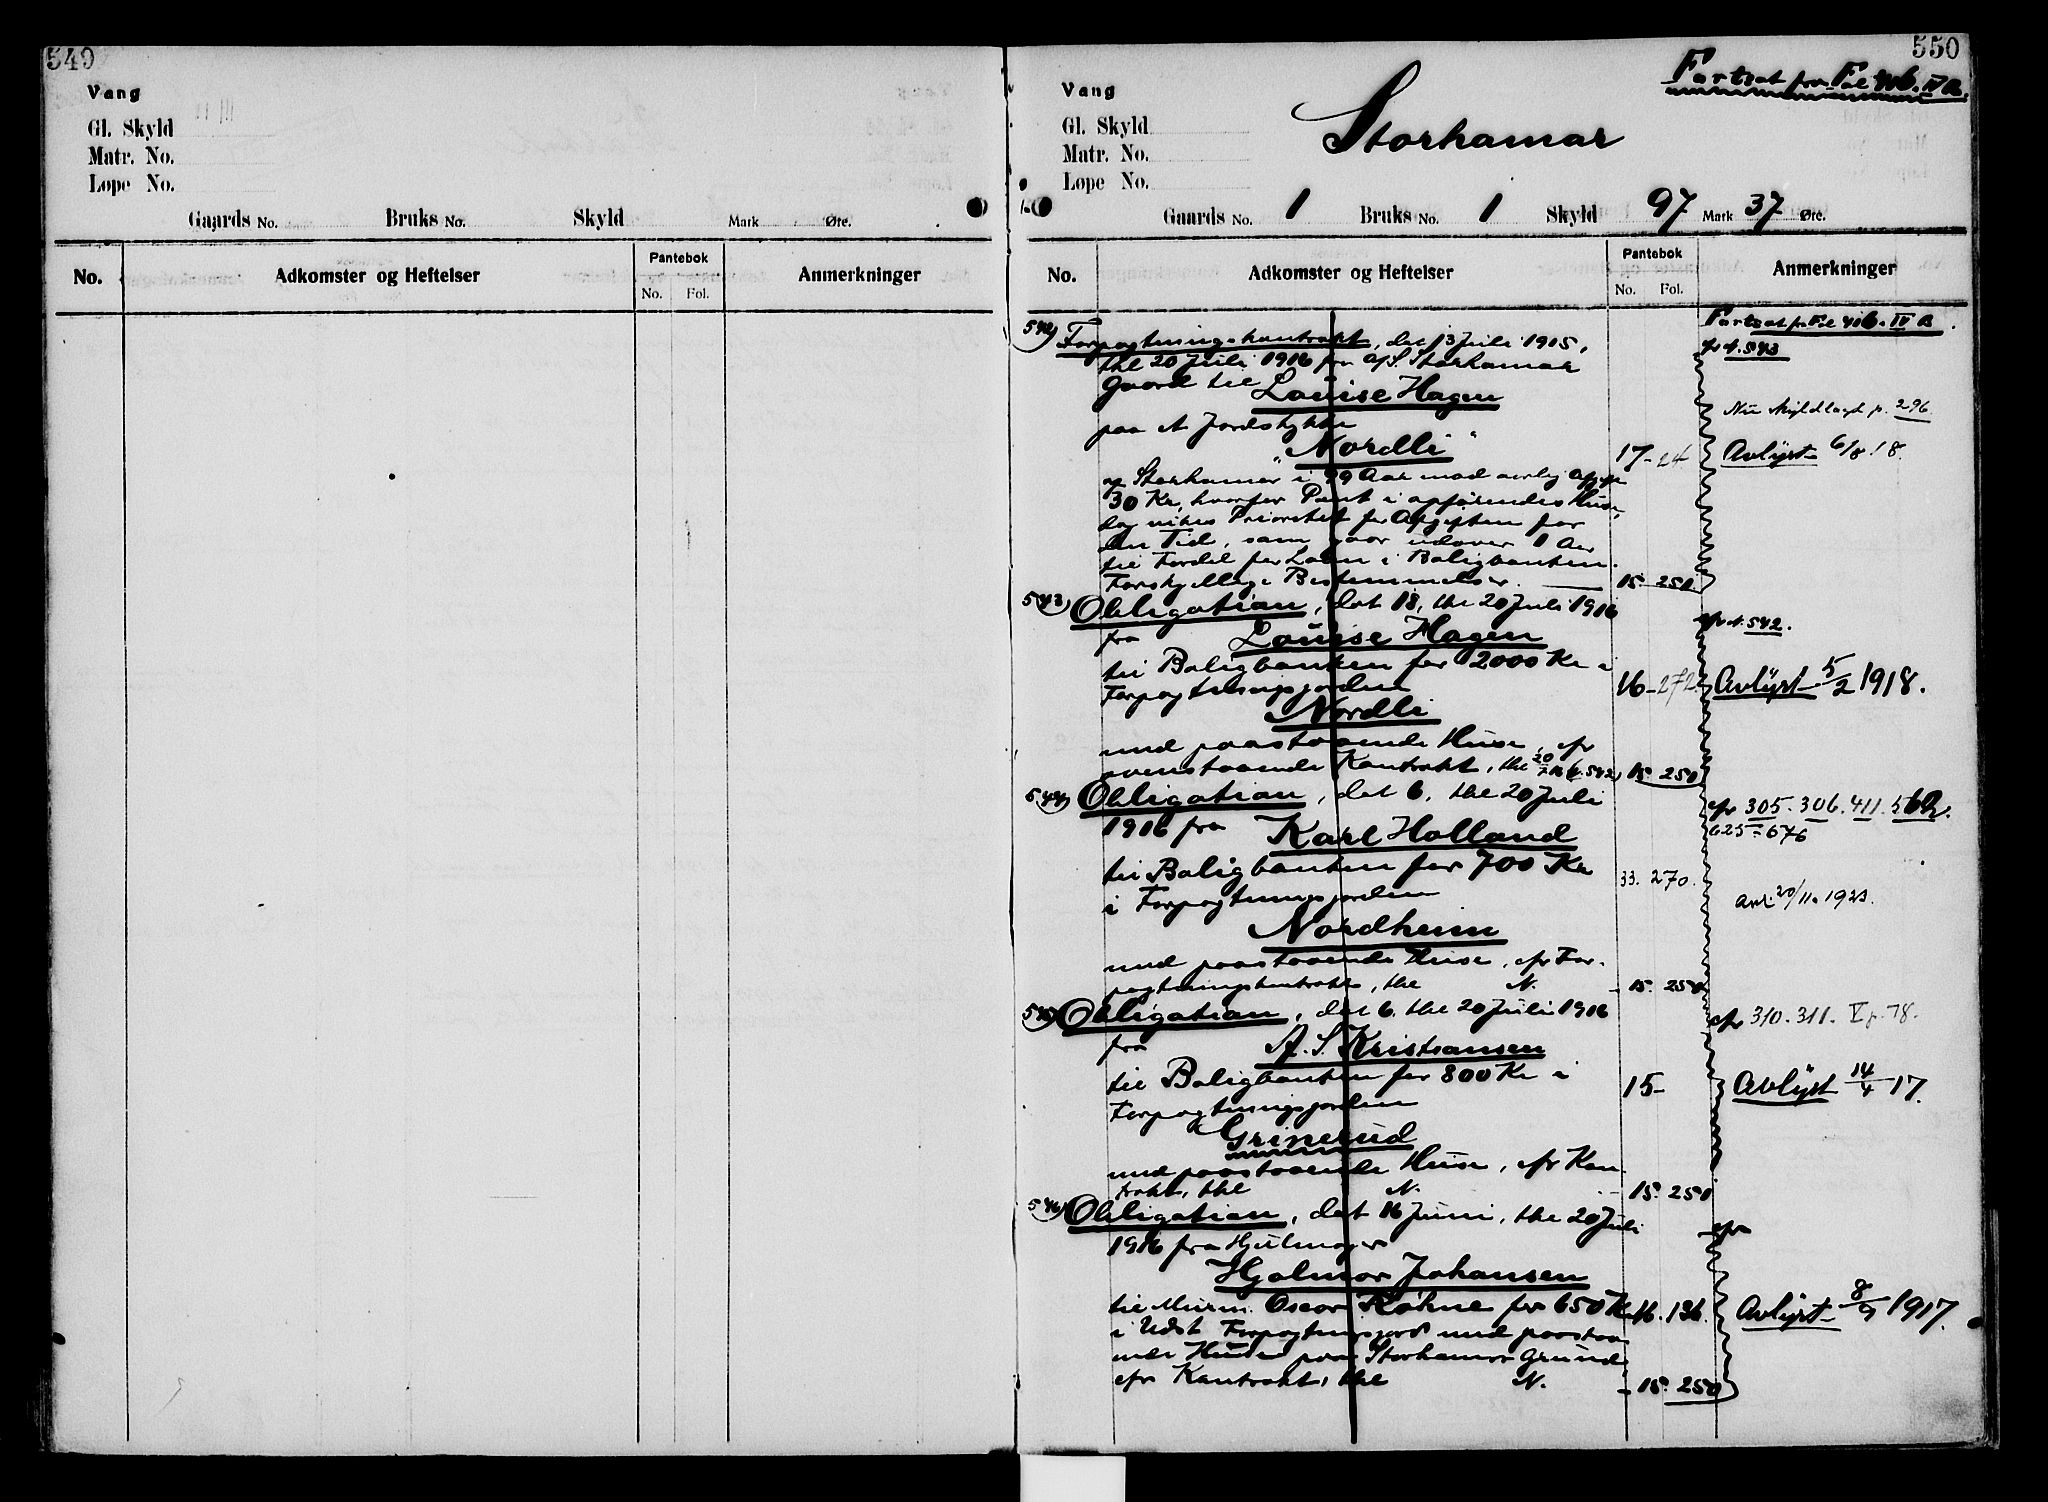 549
Vang
Gl. Skyld
Matr. No.
Løpe No.
Gaards No. Bruks No. Skyld Mark Øre.
No. Adkomster og Heftelser Pantebok Anmerkninger
No. Fol.
550
Fortsat fra Fol 416. IV B.
Vang
Gl. Skyld
Matr. No.
Løpe No.
Storhamar
Gaards No. 1 Bruks No. 1 Skyld 97 Mark 37 Øre.
No. Adkomster og Heftelser Pantebok Anmerkninger
No. Fol.
Fortsat fr Fol 416. IV B.
542) Forpagtningskontrakt, dat 13 Juli 1915, cfr d. 543
thl 20 Juli 1916 fra A/S. Storhamar
Gaard til Louise Hagen
paa et Jordstykke Nu skyldlagt p. 296.
"Nordli" 17-24 Avlyst 6/8 18.
af Storhamar i 99 Aar mod aarlig Afgift
30 Kr, hvorfor Pant i opførendes Huse,
dog vikes Prioritet for Afgiften for
den Tid, som gaar utover 1 Aar
til Fordel for Laan i Boligbanken.
Forskjellige Bestemmelser. 15. 250
543) Obligation, dat 18, thl 20 Juli 1916
fra Louise Hagen cfr d. 542.
til Boligbanken for 2000 Kr i
Forpagtningsjorden 16-272 Avlyst 5/2 1918.
Nordli
med paastaaende Huse, cfr
ovenstaaende Kontrakt, thl 20/7 16 (d. 542) 15. 250
544) Obligation, dat 6, thl 20 Juli
1916 fra Karl Holland cfr 305. 306. 411. 562.
625 = 676
til Boligbanken for 700 Kr 33. 270.
i Forpagtningsjorden Avl. 20/11. 1923.
Nordheim
med paastaaende Huse, cfr For-
pagtningskontrakt, thl N. - 15. 250
545) Obligation, dat 6. thl 20 Juli 1916
cfr 310. 311. V p. 78.
fra A. S. Kristiansen
til Boligbanken for 800 Kr i 15- Avlyst 14/4 17.
Forpagtningsjorden
Grinerud
med paastaaende Huse, cfr Kon-
trakt, thl N. - 15. 250
546) Obligation, dat 16 Juni, thl 20 Juli cfr
1916 fra Hjulmager
Hjalmar Johansen
til Murm. Oscar Köhne for 650 Kr 16. 136. Avlyst 8/9 1917.
i Udst Forpagtningsjord med paastaa-
ende Huse paa Storhamar Grund,
cfr Kontrakt, thl N. - 15. 250